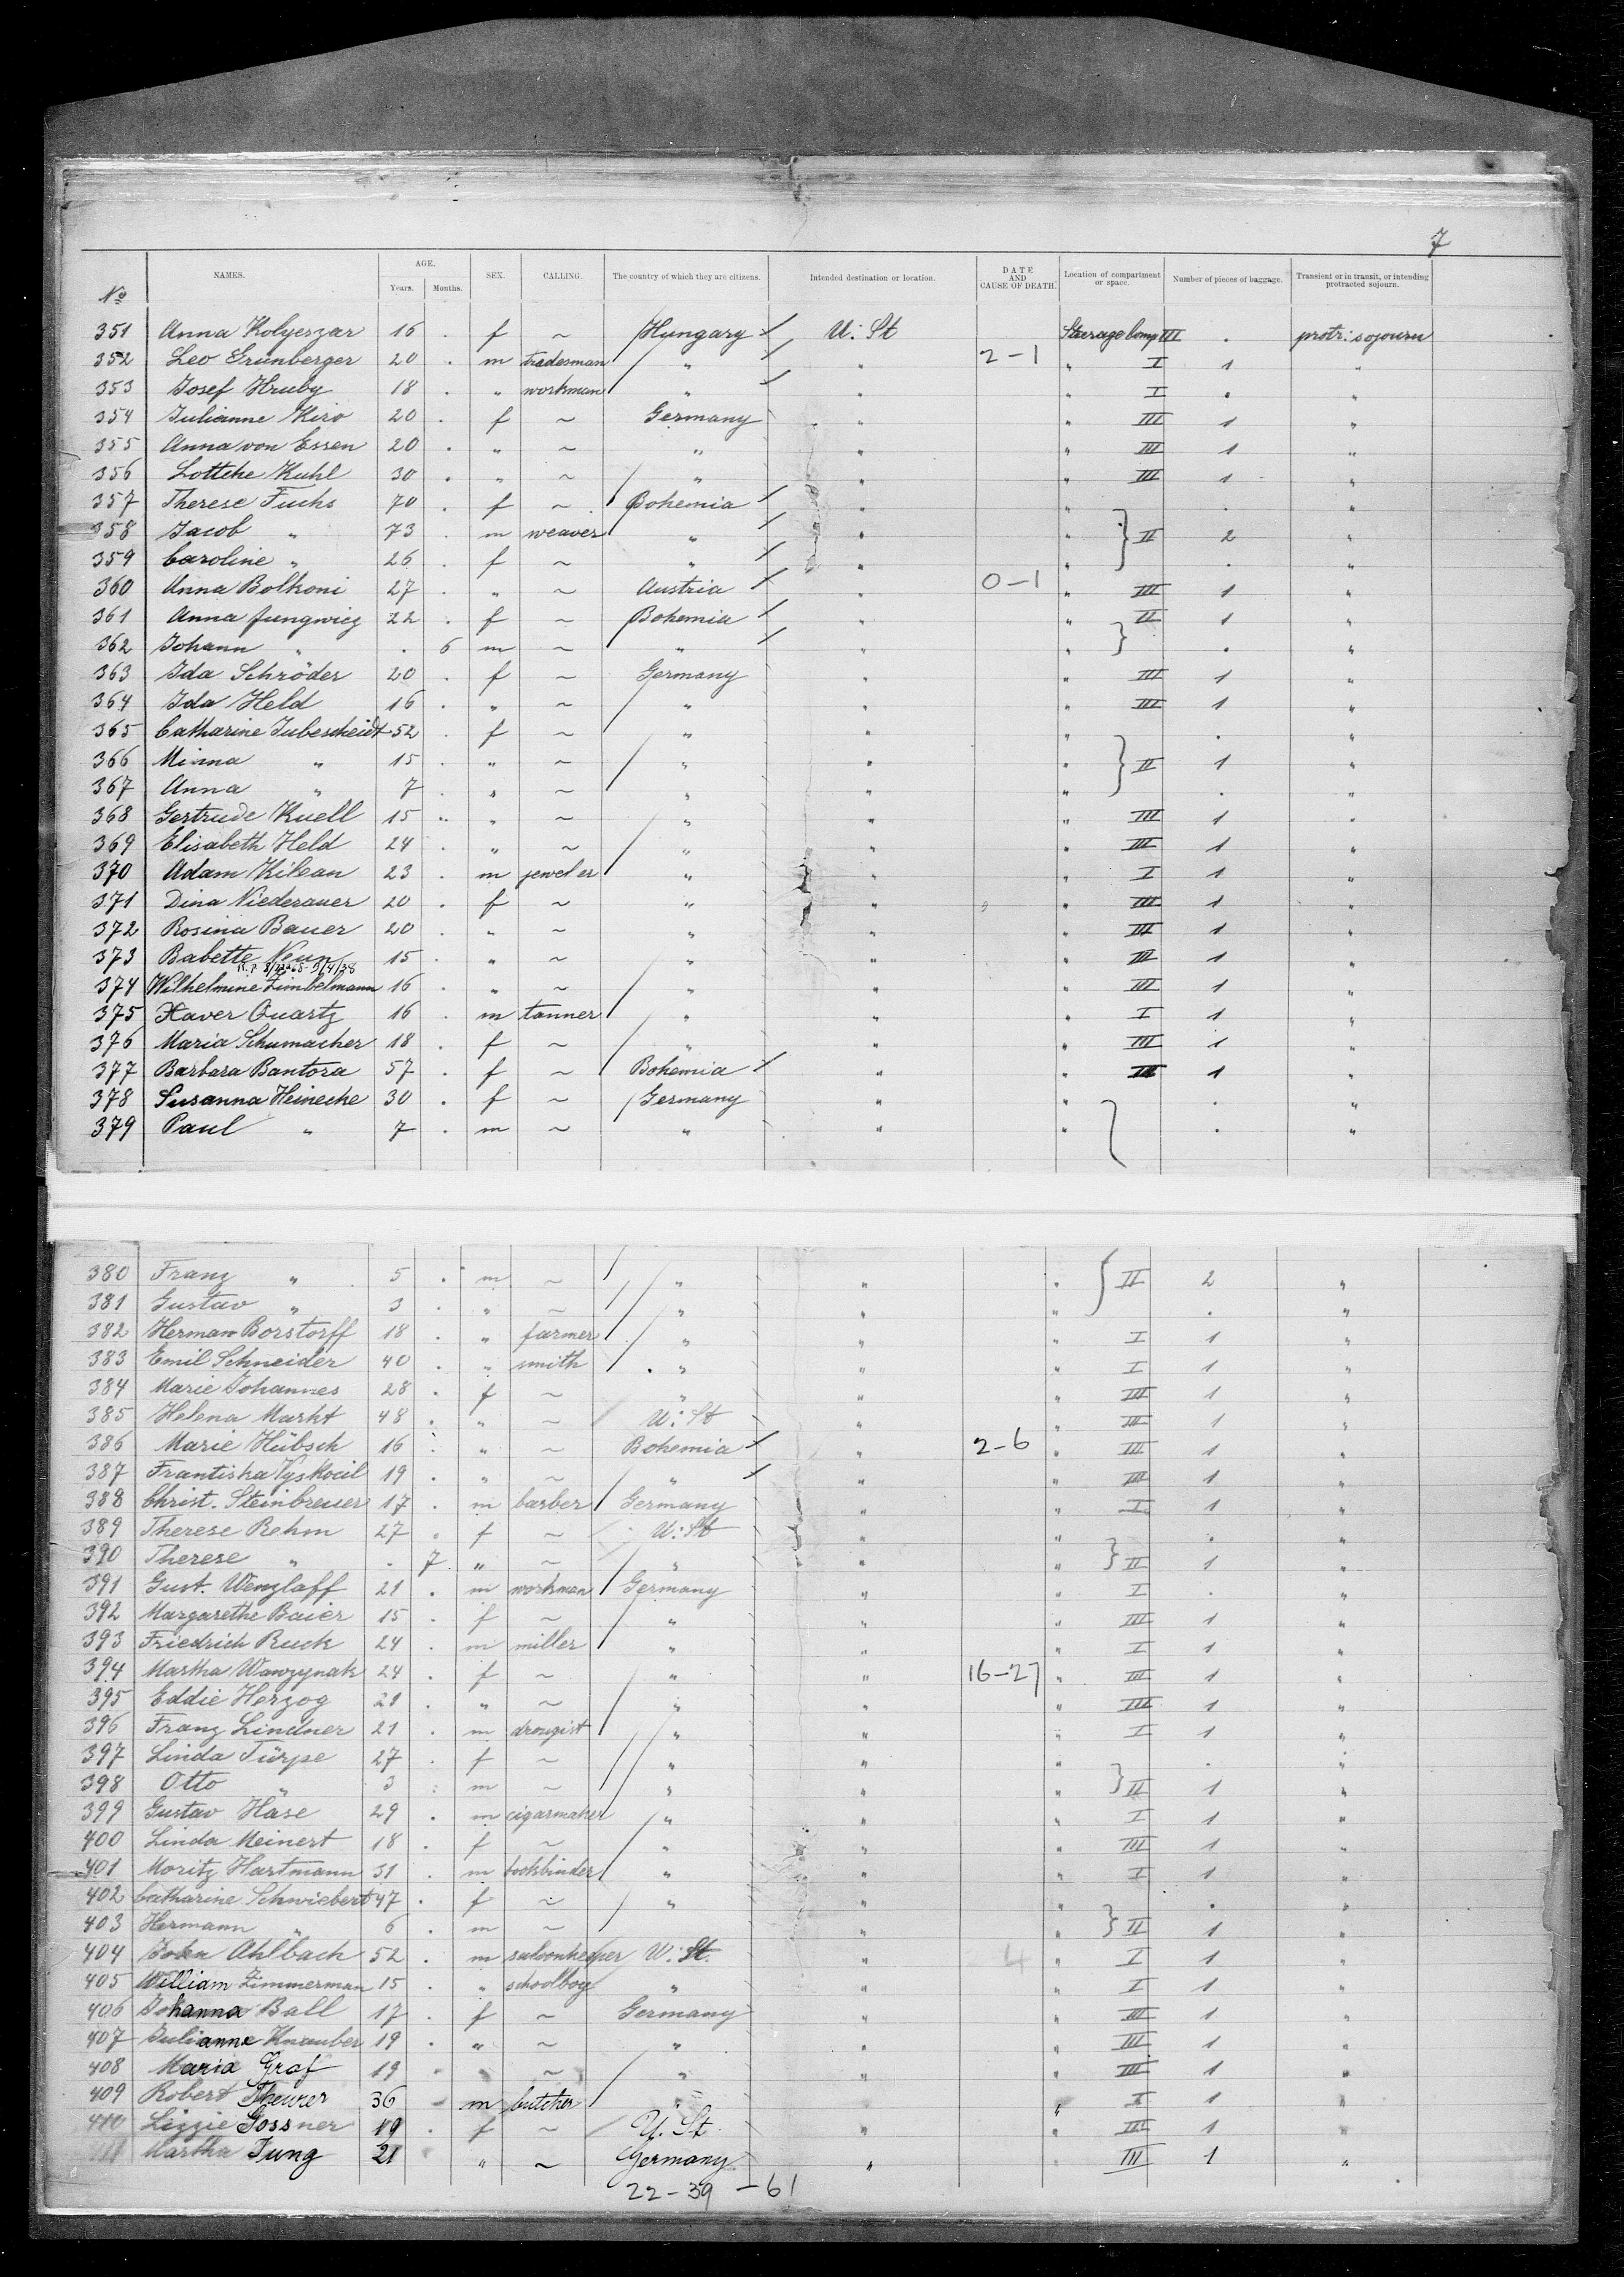 7
No NAMES. AGE. Years. Months. SEX. CALLING. The country of which they are citizens. Intended destination or location. DATE AND CAUSE OF DEATH. Location of compartment or space. Number of pieces of baggage. Transient or in transit, or intending protracted sojourn.
351 Anna Kolyeszar 16 . f ~ Hungary / U: St Steerage Comp III . protr: sojourn
352 Leo Grünberger 20 . m tradesman " / " 2-1 " I 1 "
353 Josef Hruby 18 . " workman " / " " I . "
354 Julianne Kiro 20 . f ~ Germany " " III 1 "
355 Anna von Essen 20 . " ~ " " " III 1 "
356 Lottche Kuhl 30 . " ~ " " " III 1 "
357 Therese Fuchs 70 . f ~ Bohemia / " " . "
358 Jacob " 73 . m weaver " / " " } II 2 "
359 Caroline " 26 . f ~ " / " " . "
360 Anna Bolkoni 27 . " ~ Austria / " 0-1 " III 1 "
361 Anna Jungwicz 22 . f ~ Bohemia / " " II 1 "
362 Johann " . 6 m ~ " / " " } . "
363 Ida Schröder 20 . f ~ Germany " " III 1 "
364 Ida Held 16 . " ~ " " " III 1 "
365 Catharine Jubescheidt 52 . f ~ " " " . "
366 Minna " 15 . " ~ " " " } II 1 "
367 Anna " 7 . " ~ " " " . "
368 Gertrude Kuell 15 . " ~ " " " III 1 "
369 Elisabeth Held 24 . " ~ " " " III 1 "
370 Adam Kilean 23 . m jeweler " " " I 1 "
371 Dina Niederauer 20 . f ~ " " " III 1 "
372 Rosina Bauer 20 . " ~ " " " III 1 "
373 Babette Neun 15 . " ~ " " " III 1 "
374 Wilhelmine Zimbelmann 16 . " ~ " " " III 1 "
375 Xaver Quartz 16 . m tanner " " " I 1 "
376 Maria Schumacher 18 . f ~ " " " III 1 "
377 Barbara Bantora 57 . f ~ Bohemia / " " III 1 "
378 Susanna Heinecke 30 . f ~ Germany " " . "
379 Paul " 7 . m ~ " " " . "
380 Franz " 5 . m ~ " " " } II 2 "
381 Gustav " 3 . " ~ " " " . "
382 Herman Borstorff 18 . " farmer " " " I 1 "
383 Emil Schneider 40 . " smith " " " I 1 "
384 Marie Johannes 28 . f ~ " " " III 1 "
385 Helena Markt 48 . " ~ U: St " " III 1 "
386 Marie Hübsch 16 . " ~ Bohemia / " 2-6 " III 1 "
387 Frantiska Vyskocil 19 . " ~ " / " " III 1 "
388 Christ. Steinbreuer 17 . m barber Germany " " I 1 "
389 Therese Rehm 27 . f ~ U: St " " . "
390 Therese " . 7 " ~ " " " } II 1 "
391 Gust. Wenzlaff 21 . m workman Germany " " I . "
392 Margarethe Baier 15 . f ~ " " " III 1 "
393 Friedrich Ruck 24 . m miller " " " I 1 "
394 Martha Wawzynak 24 . f ~ " " 16-27 " III 1 "
395 Eddie Herzog 21 . " ~ " " " III 1 "
396 Franz Lindner 21 . m drougist " " " I 1 "
397 Linda Türpe 27 . f ~ " " " . "
398 Otto " 3 . m ~ " " " } II 1 "
399 Gustav Häse 29 . m cigarmaker " " " I 1 "
400 Linda Meinert 18 . f ~ " " " III 1 "
401 Moritz Hartmann 31 . m bookbinder " " " I 1 "
402 Catharine Schwiebert 47 . f ~ " " " . "
403 Hermann " 6 . m ~ " " " } II 1 "
404 John Ahlbach 52 . m saloonkeeper U: St. " 4 " I 1 "
405 William Zimmerman 15 . " schoolboy " " " I 1 "
406 Johanna Ball 17 . f ~ Germany " " III 1 "
407 Julianne Knauber 19 . " ~ " " " III 1 "
408 Maria Graf 19 . " ~ " " " III 1 "
409 Robert Theurer 36 . m butcher " " " I 1 "
410 Lizzie Gossner 19 . f ~ U. St " " III 1 "
411 Martha Jung 21 " ~ Germany " " III 1 "
22-39 -61